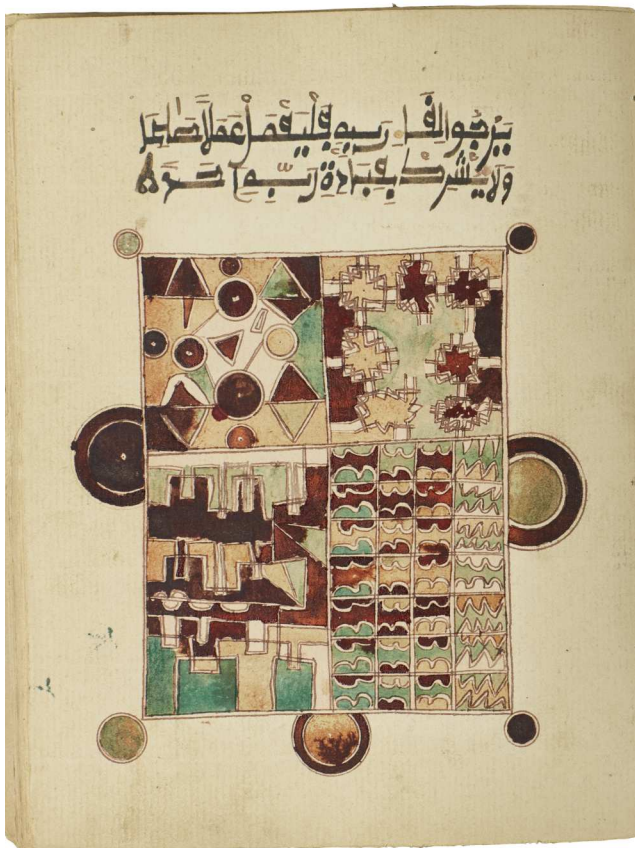 يرجوا لقا ربه فليعمل عملا صالحا
ولا يشرك بعبادة ربه احدا